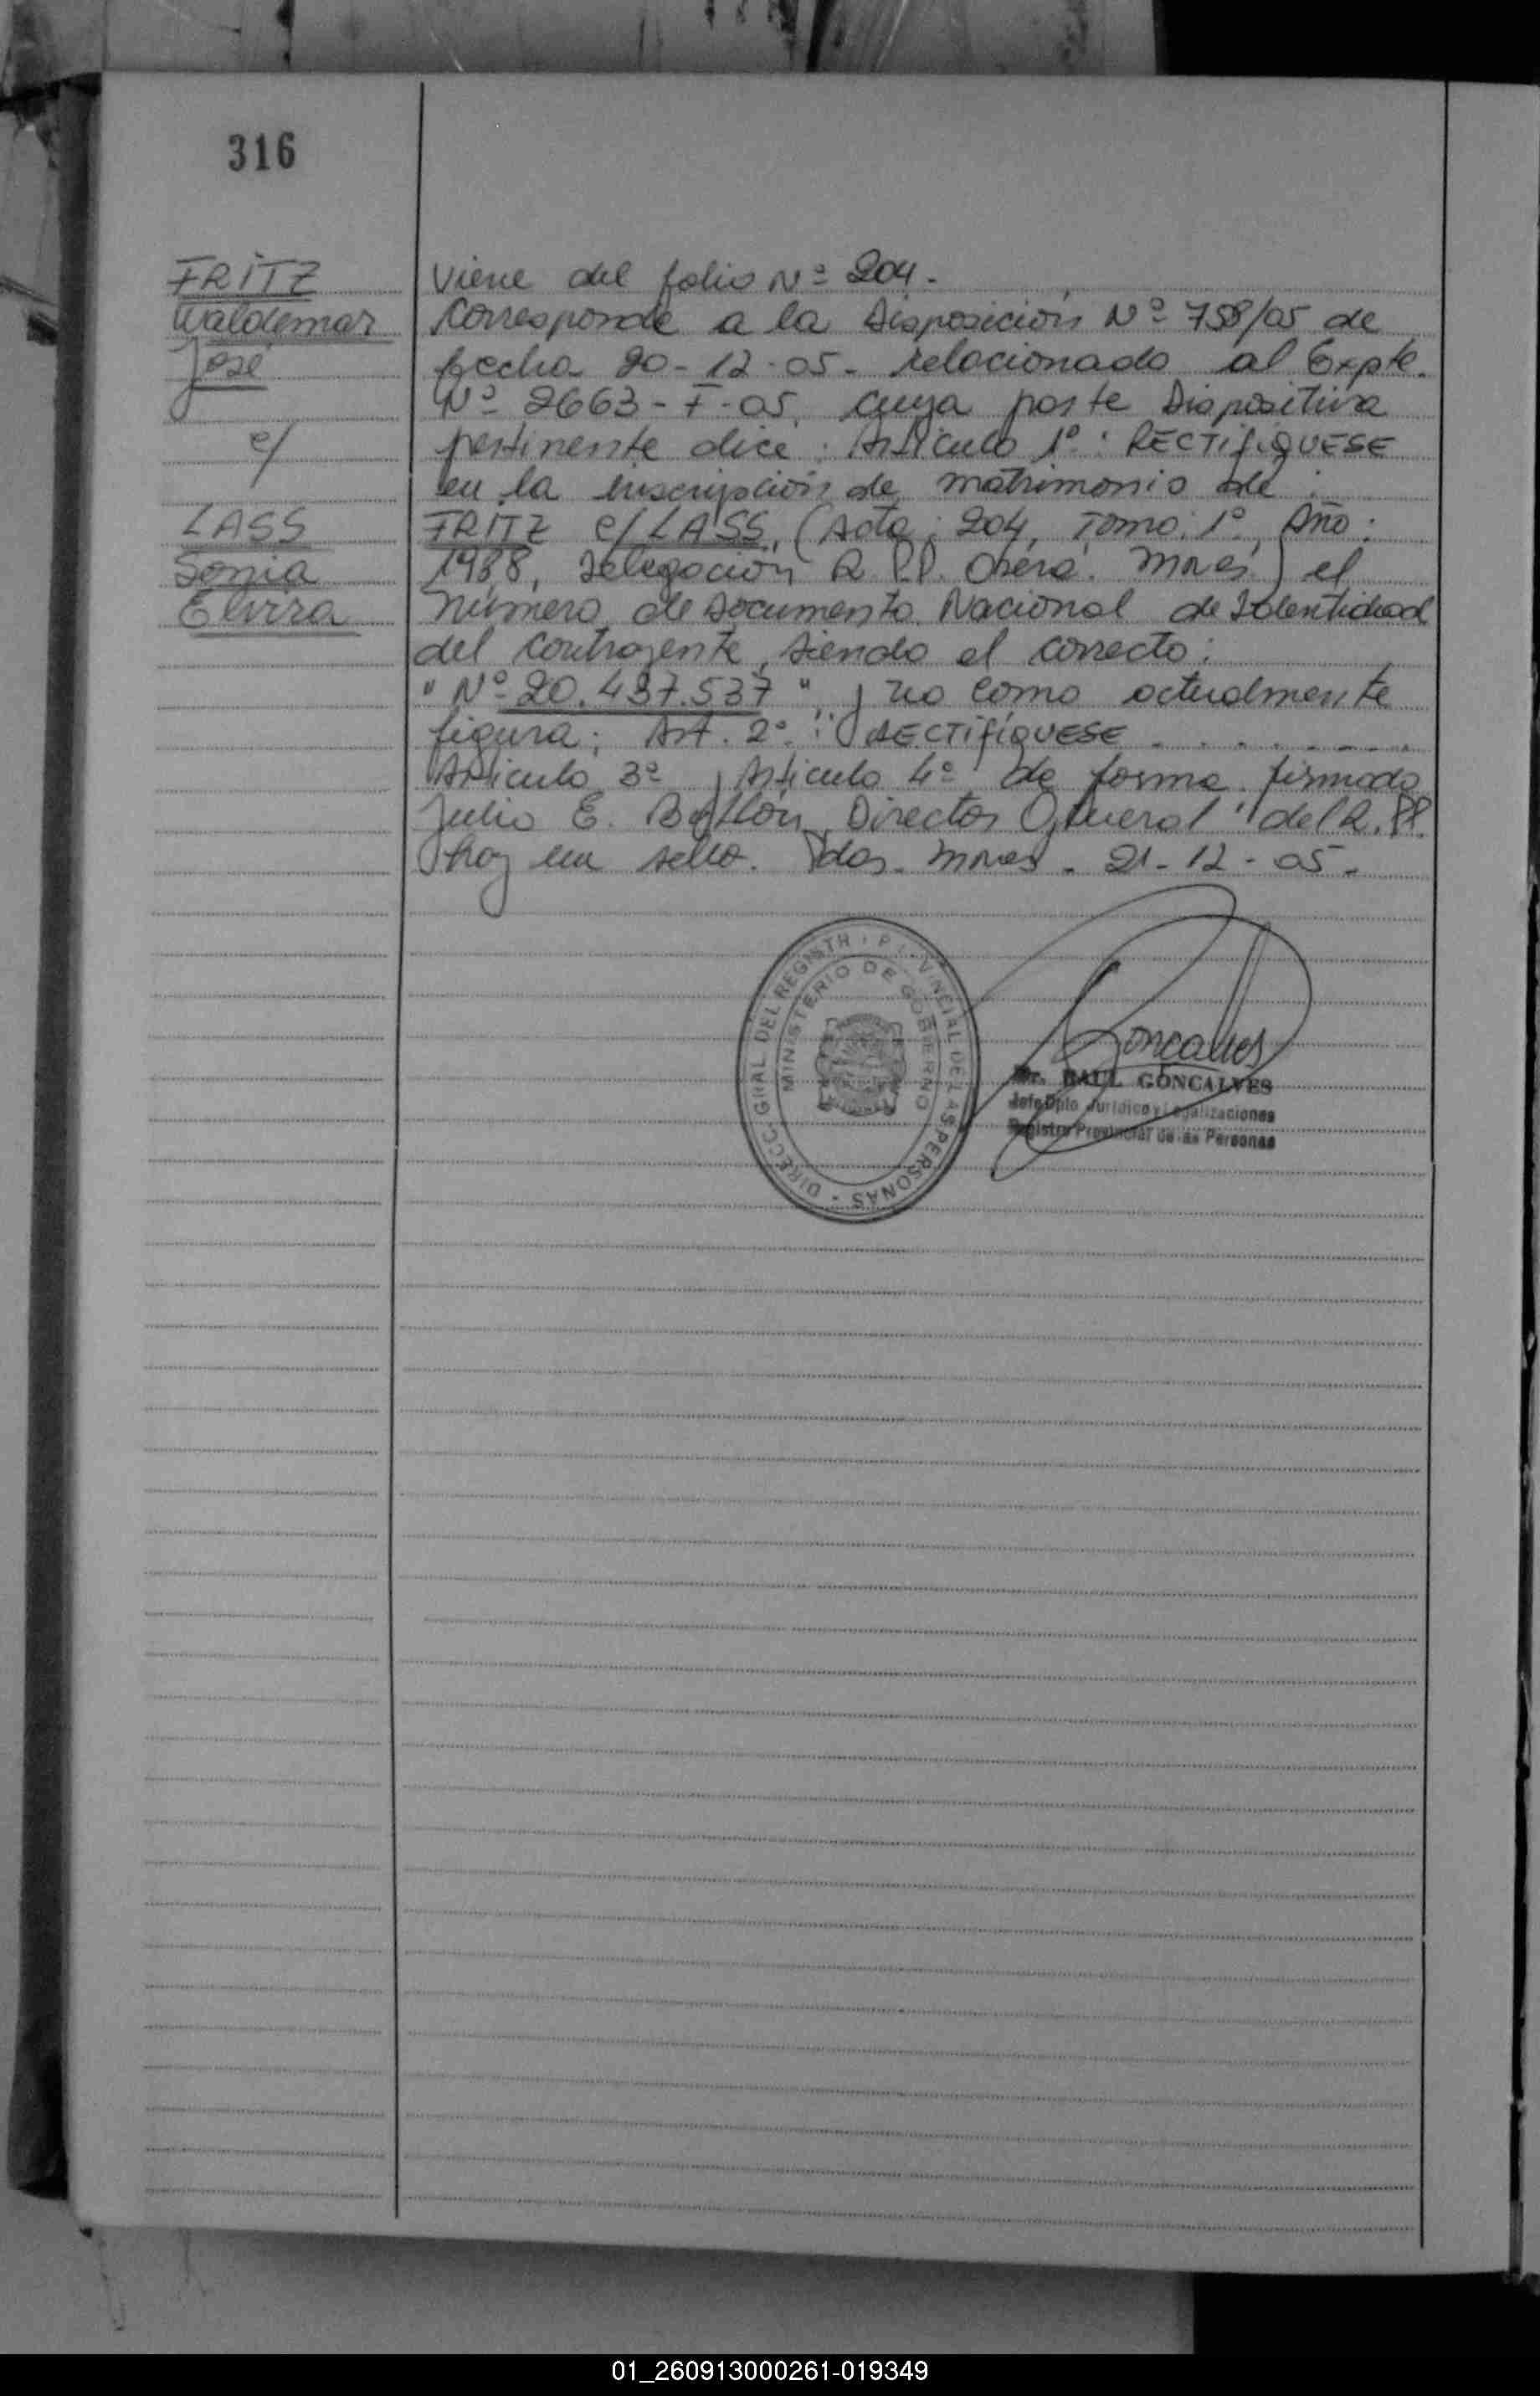 316
FRITZ
Waldemar
José
c/
LASS
Sonia
Elvira
Viene del folio Nº 204.-
Corresponde a la Disposición Nº 758/05 de
fecha 20-12-05- relacionado al Expte.
Nº 2663-F-05, cuya parte Dispositiva
pertinente dice: Artículo 1º: RECTIFIQUESE
en la inscripción de matrimonio de:
FRITZ c/ LASS, (Acta: 204, Tomo: 1º, Año:
1988, Delegación R.P.P. Oberá. Mnes.) el
número de Documento Nacional de Identidad
del contrayente, siendo el correcto:
"Nº 20.437.537", y no como actualmente
figura; Art. 2º: RECTIFÍQUESE . . . . . . .
Artículo 3º y Artículo 4º de forma. firmado
Julio E. General del R.PP.
hay un sello. Pdas. Mnes. 21-12-05.-
DIRECC. GRAL DEL REGISTR. PROVINCIAL DE LAS PERSONAS -
MINISTERIO DE GOBIERNO
Goncalves
Dr. RAUL GONCALVES
Jefe Dpto Jurídico y Legalizaciones
Registro Provincial de las Personas
01_260913000261-019349